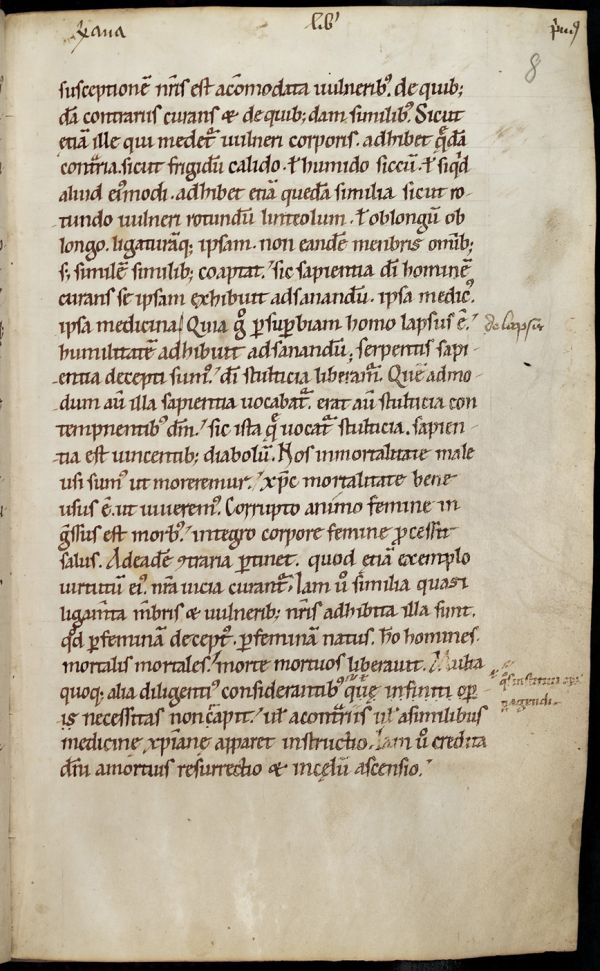 xp̄iana lib' p̄im9
8
susceptionē nr̄is est acōmodata uulnerib9. de quib;
dā contrariis curans & de quib; dam similib9. Sicut
etiā ille qui medet̄ uulneri corporis. adhibet q̄dā
contᷓria. sicut frigidū calido. ł humido siccū. ł siq̇d
aliud ei9modi. adhibet etiā quedā similia sicut ro-
tundo uulneri rotundū linteolum. ł oblongū ob
longo. ligaturāq; ipsam. non eandē menbris omīb;
s; similē similib; coaptat. sic sapientia dī hominē
curans se ipsam exhibuit ad sanandū. ipsa medic9.
ipsa medicina. Quia ḡ ꝑ suꝑbiam homo lapsus ē. de lapsu
humilitatē adhibuit ad sanandū, serpentis sapi-
entia decepti sum9. dī stulticia liberam̄. Quē admo-
dum aū illa sapientia uocabat̄. erat aū stulticia con
tempnentib9 dm̄. sic ista q̄ uocat̄ stulticia. sapien-
tia est uincentib; diabolū. Nos inmortalitate male
usi sum9 ut moreremur. xp̄c mortalitate bene
usus ē. ut uiuerem9. Corrupto animo femine in
gᷓssus est morb9. integro corpore femine p̄cessit
salus. Ad eadē ꝯtraria ꝑtinet. quod etiā exemplo
uirtutū ei9. nr̄a uicia curant̄. Iam u° similia quasi
ligam̄ta m̄bris & uulnerib; nr̄is adhibita illa sunt.
qd̄ ꝑ feminā decept9. ꝑ feminā natus. ho homines.
mortalis mortales. morte mortuos liberauit. Multa
quoq; alia diligenti9 considerantib9 quę infiniti oꝑ
is necessitas non cᷓpit. ul' a contᷓriis ul' a similibus
medicine xp̄iane apparet instructio. Iam u° credita
dn̄i a mortuis resurrectio & in cęlū ascensio.